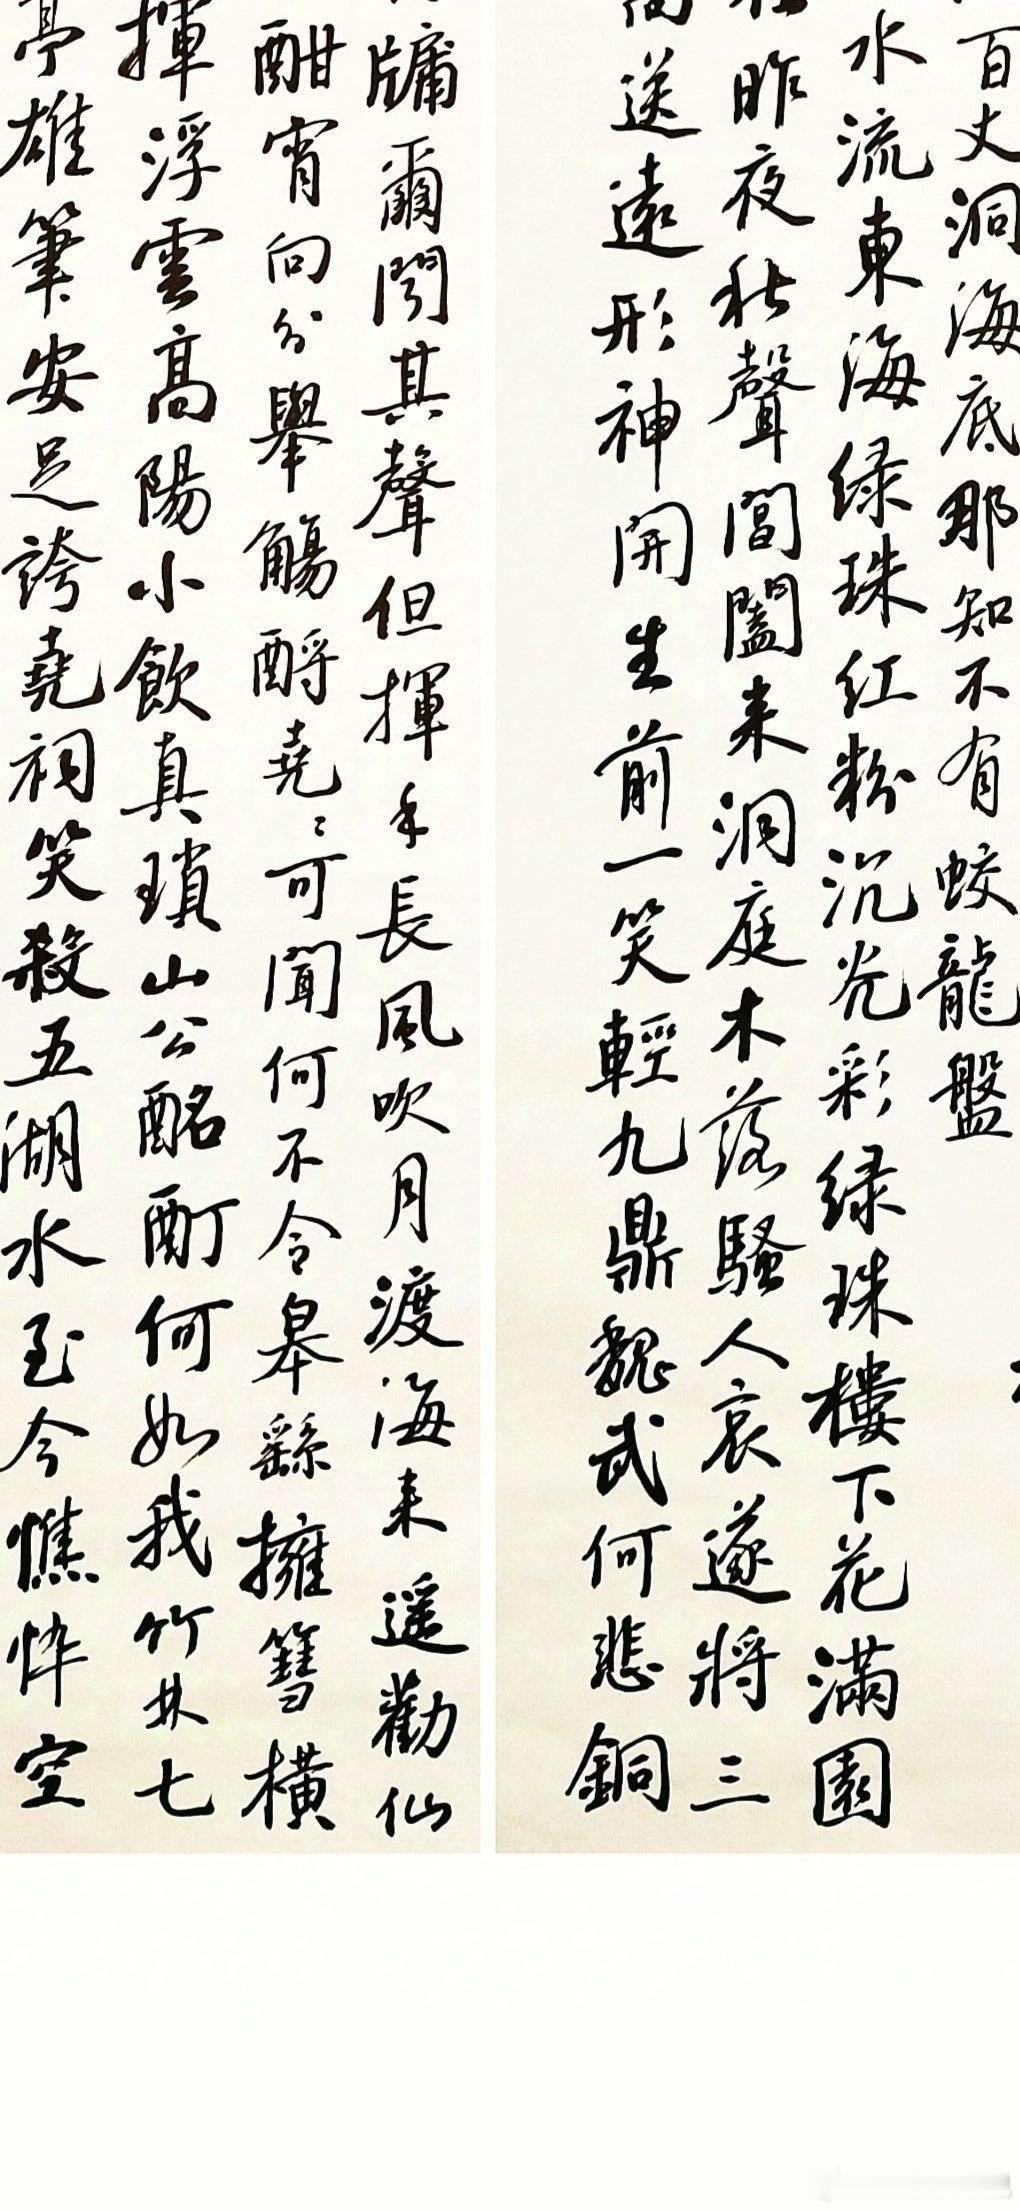 百丈洞海底那知不有蛟龍盤
水流東海绿珠红粉沉光彩绿珠樓下花滿園
昨夜秋聲閶闔来洞庭木落騷人哀遂將三
送遠形神開生前一笑輕九鼎魏武何悲銅
牖爾聞其聲但揮手長風吹月渡海来遥勸仙
酣宵向分舉觴酹堯〻可聞何不令皋繇擁篲橫
揮浮雲高陽小飲真瑣山公酩酊何如我竹林七
亭雄筆安足誇堯祠笑殺五湖水至今憔悴空